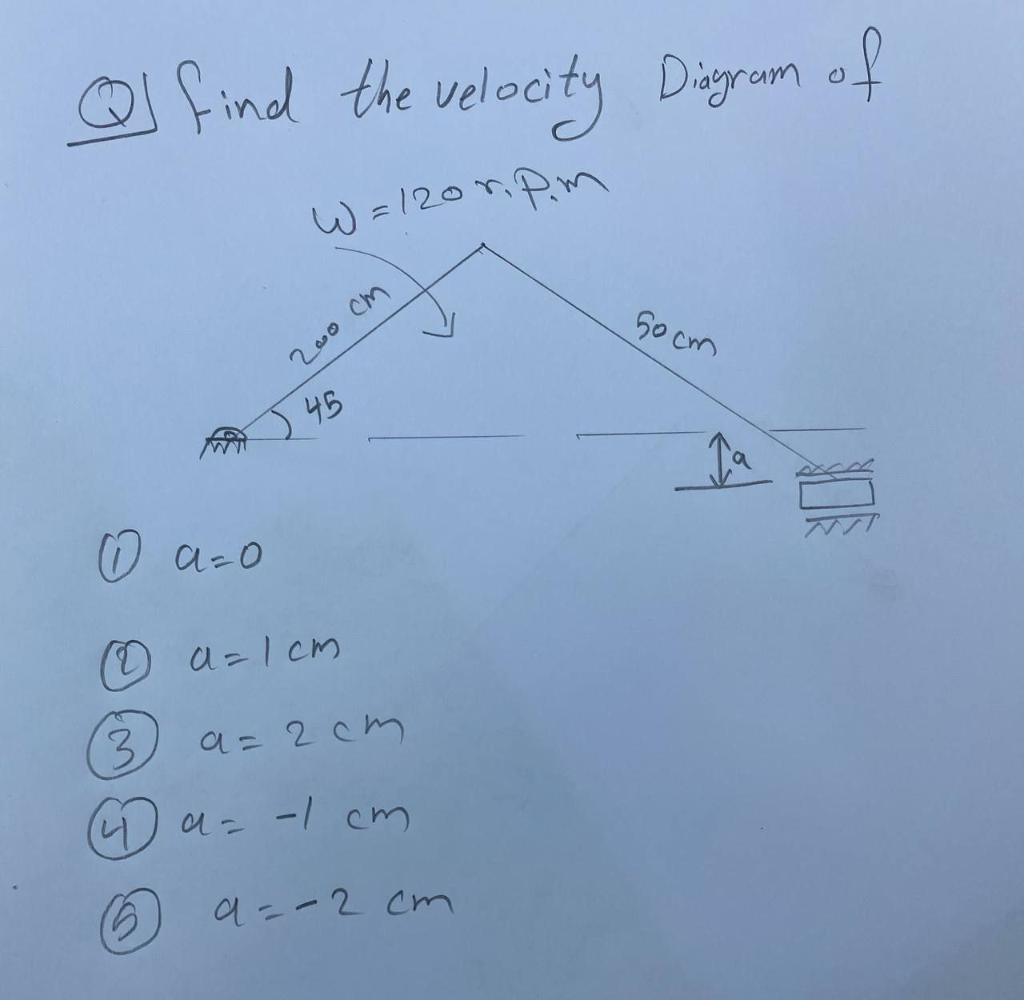 Q] find the velocity Diagram of
W=120 r.p.m
200 cm
50 cm
45
a
① a=0
② a=1 cm
③ a=2 cm
④ a=-1 cm
⑤ a=-2 cm